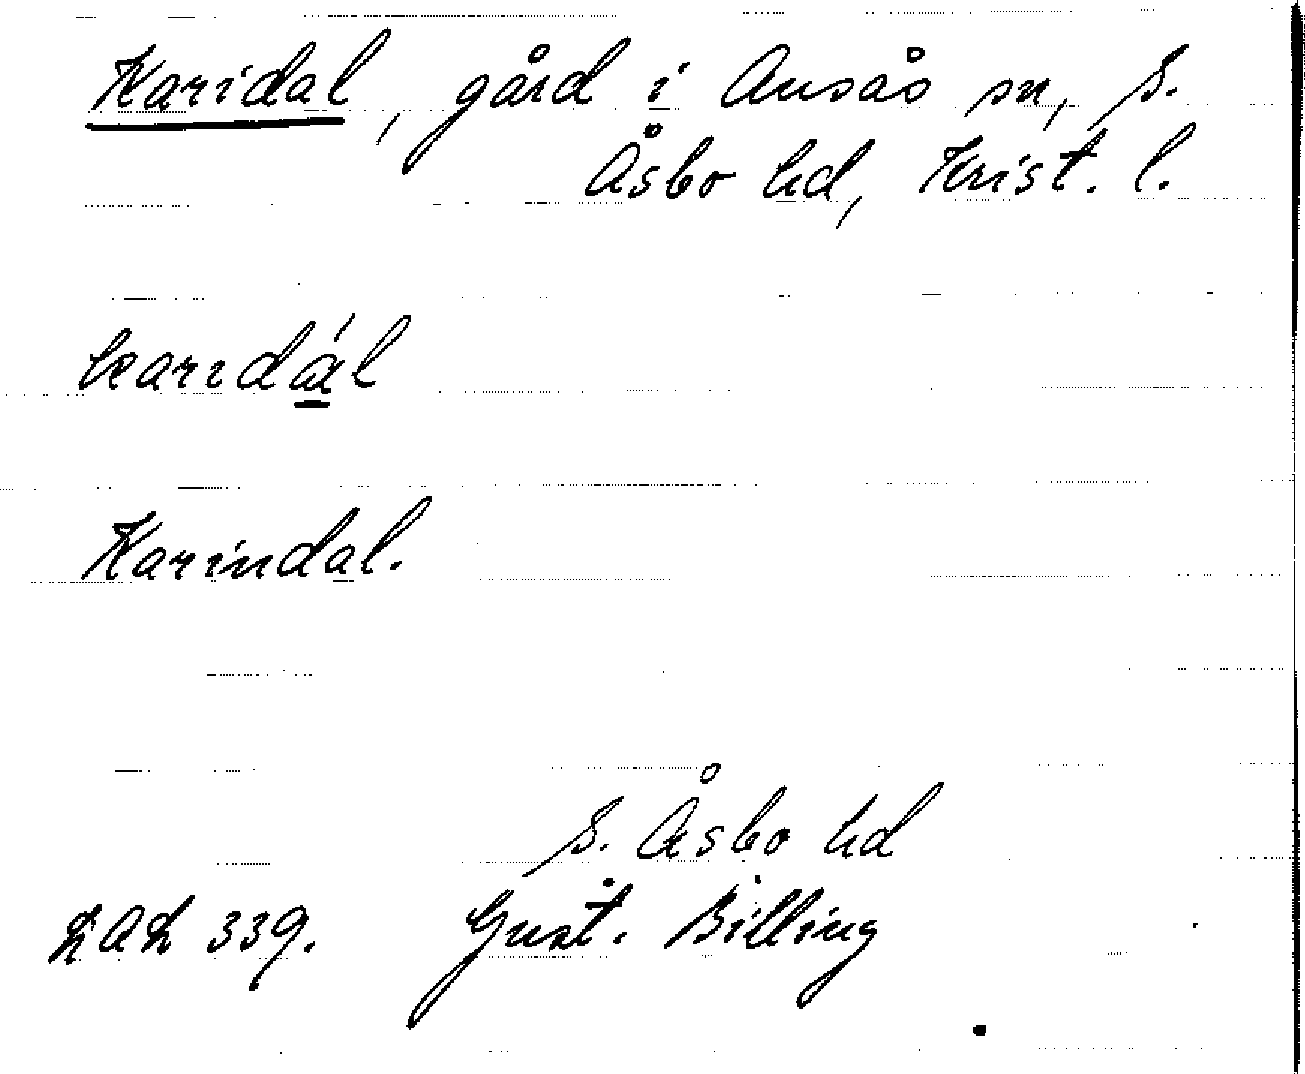 Karidal, gård i Ausås sn, S.
Åsbo hd, Krist. l.
karıdál
Karindal.
S. Åsbo hd
LAL 339. Gust. Billing